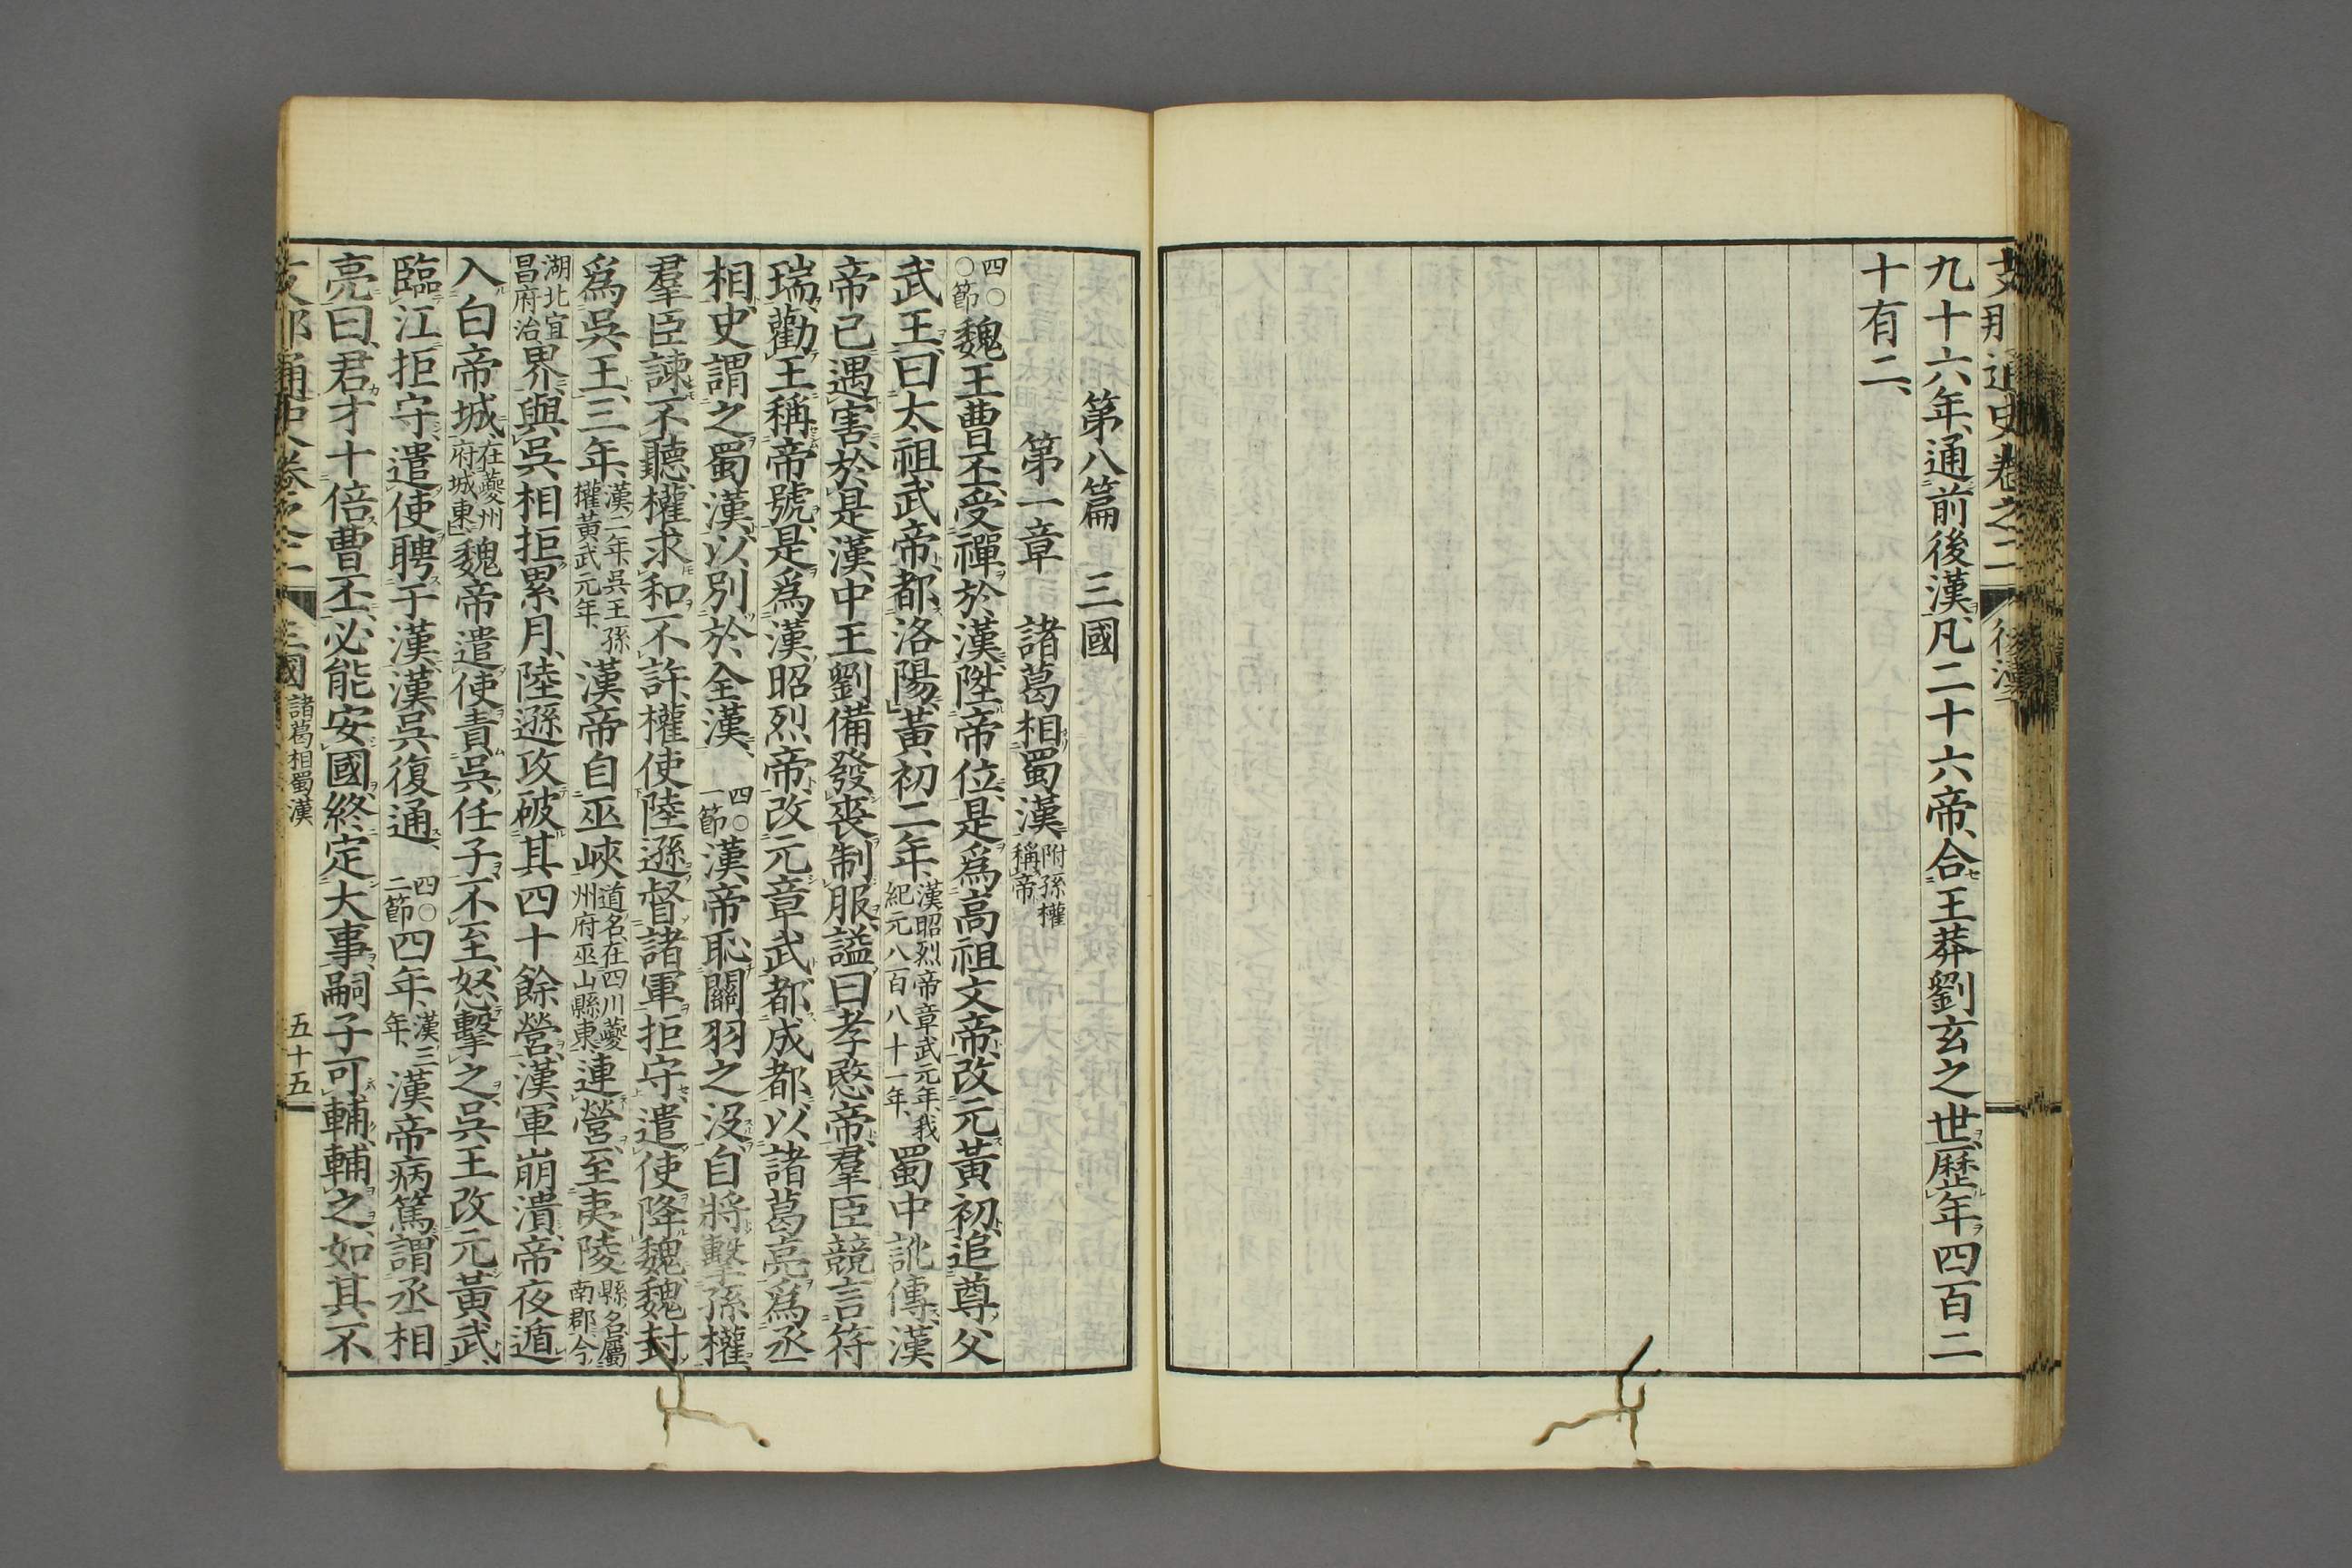 支那通史卷之二 後漢
九十六年、通前後漢、凡二十六帝、合王莽劉玄之世、歷年四百二
十有二、
第八篇 三國
第一章 諸葛相蜀漢 附孫權稱帝
四〇〇節 魏王曹丕、受禪於漢、陞帝位、是爲高祖文帝、改元黃初、追尊父
武王、曰太祖武帝、都洛陽、黃初二年、漢昭烈帝章武元年、我紀元八百八十一年、蜀中訛傳、漢
帝已遇害、於是漢中王劉備發喪制服、謚曰孝愍帝、羣臣競言符
瑞、勸王稱帝號、是爲漢昭烈帝、改元章武、都成都、以諸葛亮爲丞
相、史謂之蜀漢、以別於全漢、四〇一節 漢帝恥關羽之沒、自將擊孫權、
羣臣諫不聽、權求和不許、權使陸遜督諸軍拒守、遣使降魏、魏封
爲吳王、三年、漢二年、吳王孫權黃武元年、漢帝自巫峽道名、在四川夔州府巫山縣東、連營至夷陵縣名、屬南郡、今
湖北宜昌府治界、與吳相拒累月、陸遜攻破其四十餘營、漢軍崩潰、帝夜遁
入白帝城、在夔州府城東、魏帝遣使責吳任子、不至、怒擊之、吳王改元黃武、
臨江拒守、遣使聘于漢、漢吳復通、四〇二節 四年、漢三年、漢帝病篤、謂丞相
亮曰、君才十倍曹丕、必能安國、終定大事、嗣子可輔輔之、如其不
支那通史卷之二 三國 諸葛相蜀漢 五十五